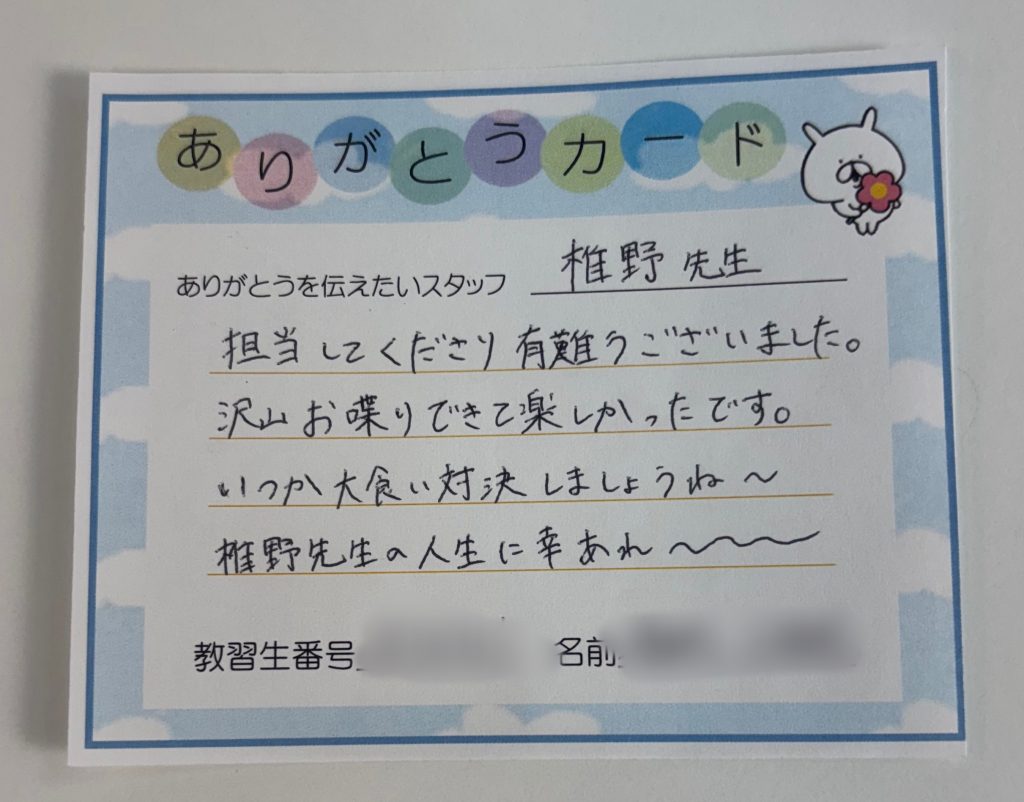 ありがとうカード
ありがとうを伝えたいスタッフ 椎野先生
担当してくださり有難うございました。
沢山お喋りできて楽しかったです。
いつか大食い対決しましょうね〜
椎野先生の人生に幸あれ〜〜〜
教習生番号 名前